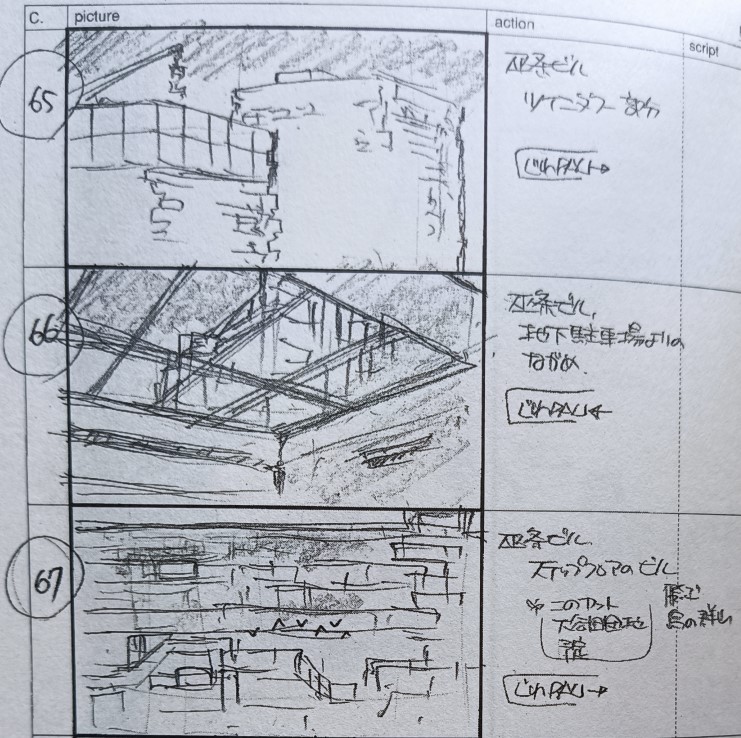 C. picture action script
65
巫条ビル
ツインタワー部分
じわPAN→
66
巫条ビル、
地下駐車場よりの
ながめ
じわPAN←
67
巫条ビル
ステップフロアのビル
このカット
じわPAN→
鳥の群れ